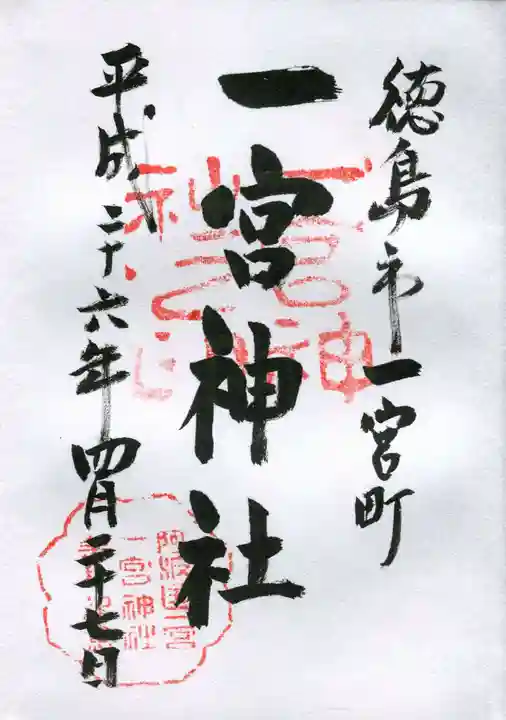 徳島市一宮町
一宮神社
平成二十六年四月二十七日
阿波国一宮
一宮神社